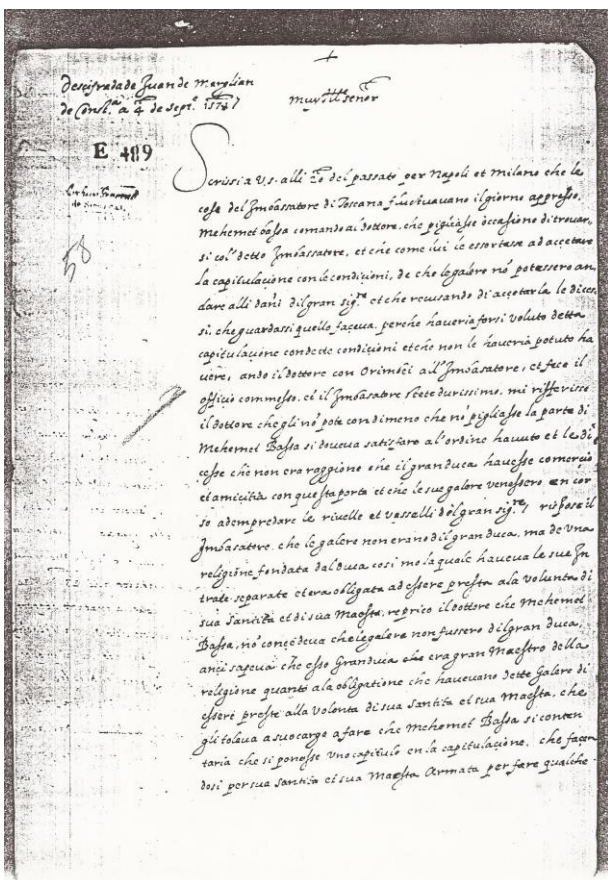 +
Descifrada de Juan de Marglian
de Const.ª a 4 de sept.e 1574
muy Ill.e señor
E 489
58
Scrissi a V.S. alli 20 del passato per Napoli et Milano che le
cose del Imbassatore di Toscana fluctuavano il giorno appresso,
Mehemet bassa comando al dottore, che pigliasse occasione di trovar
si col detto Imbassatore, et che come lui le essortasse ad accetare
la capitulacione con le condicioni, de che le galere nõ potessero an
dare alli dani dil gran sig.re et che recusando di accetarla le dices
si, che guardassi quello faceva, perche haveria forsi voluto detta
capitulacione con dette condicioni et che non le haveria potuto ha
vere, ando il dottore con Orimbei all'Imbasatore, et fece il
officio commesso, et il Imbasatore stete durissimo, mi rifferisse
il dottore che gli nõ pote con dimeno che nõ pigliasse la parte di
Mehemet Bassa si doveva satisfare al'ordine havuto et le di
cesse che non era raggione che il gran duca havesse comercio
et amicitia con questa porta et che le sue galere venessero en cor
so ad empredare le rivelle et vasselli dol gran sig.re, rispose il
Imbasatore, che le galere non erano dil gran duca, ma de una
religione fondata dal duca cosimo la quale haveva le sue In
trate separate et era obligata ad essere presta ala volunta di
sua Santita et di sua Maesta, reprico il dottore che Mehemet
Bassa, nõ concedeva che le galere non fussero dil gran duca,
anci sapeva che esso Granduca era gran Maestro della
religione quanto ala obligatione che havevano dette Galere di
esseri preste alla Volonta di sua Santita et sua Maesta, che
gli toleva a suo carge a fare che Mehemet Bassa si conten
taria che si ponesse uno capitulo en la capitulacione, che facen
dosi per sua Santita et sua Maesta Armata per fare qualche